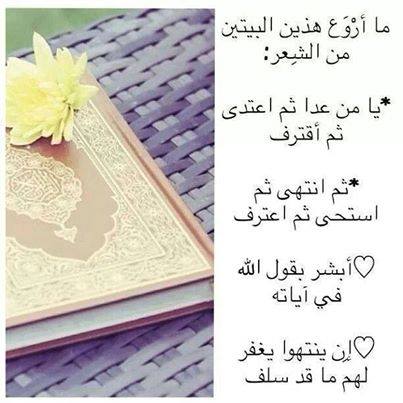 ما أرْوَع هذين البيتين
من الشِعر:
*يا من عدا ثم اعتدى
ثم أقترف
*ثم انتهى ثم
استحى ثم اعترف
♡أبشر بقول الله
في آياته
♡إن ينتهوا يغفر
لهم ما قد سلف